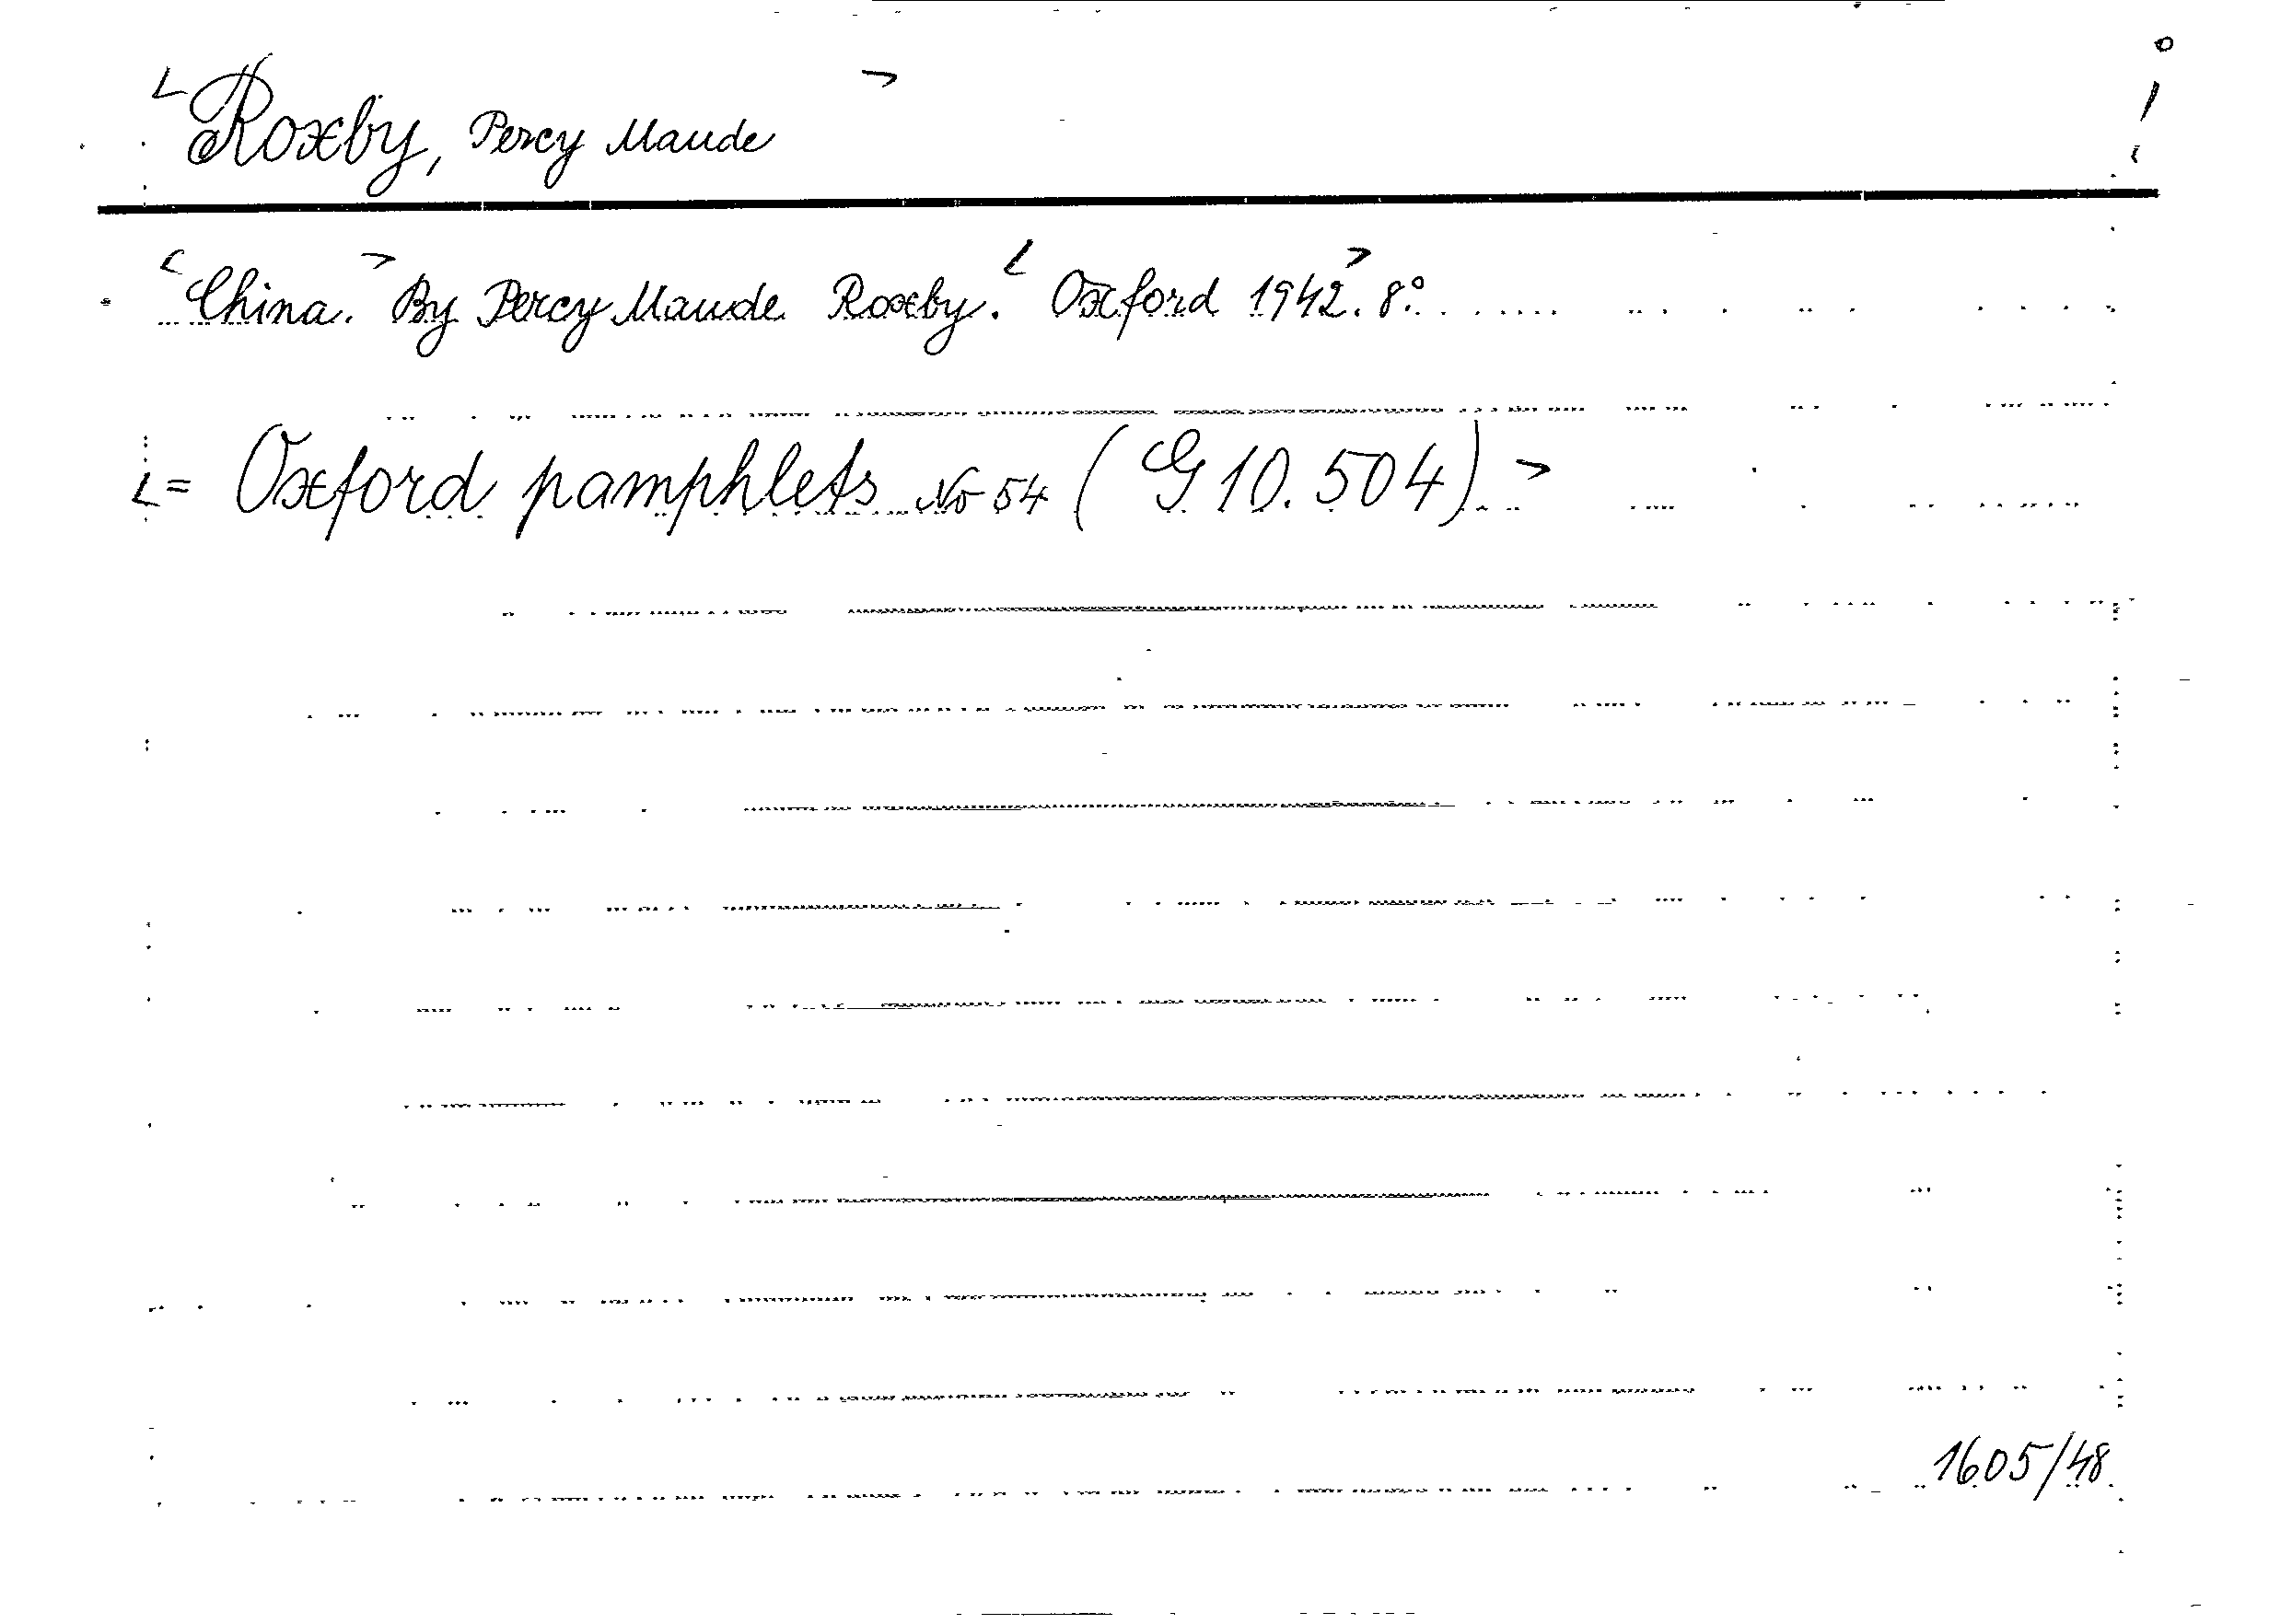 Roxby, Percy Maude
China. By Percy Maude Roxby. Oxford 1942. 8°.
= Oxford pamphlets No 54 (G 10.504)
1605/48